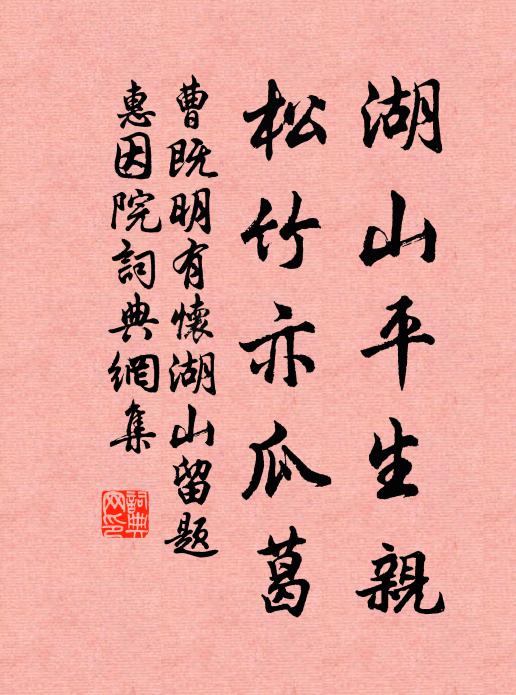 湖山平生親
松竹亦瓜葛
曹既明有懷湖山留題
惠因院詞典網集
詞典网印